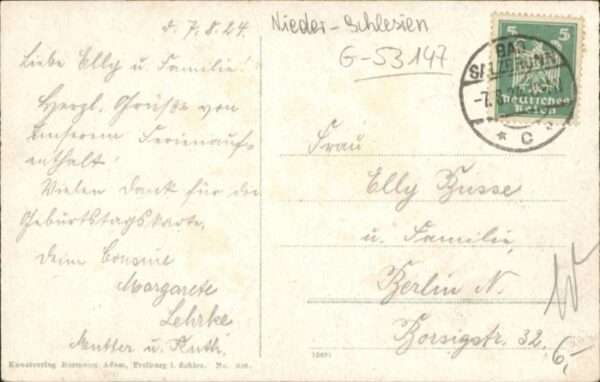 d. 7.8.24.
Nieder-Schlesien
G-53147
Liebe Elly u. Familie!
Herzl. Grüße von
unserem Ferienauf-
enthalt!
Vielen Dank für die
Geburtstagskarte.
Deine Cousine
Margarete
Lehrke
Mutter u. Ruth.
5 5
Deutsches
Reich
BAD
SALZBRUNN
-7.8.
* C
Frau
Elly Busse
u. Familie
Berlin N.
Borsigstr. 32
6,-
Kunstverlag Hermann Adam, Freiburg i. Schles. No.